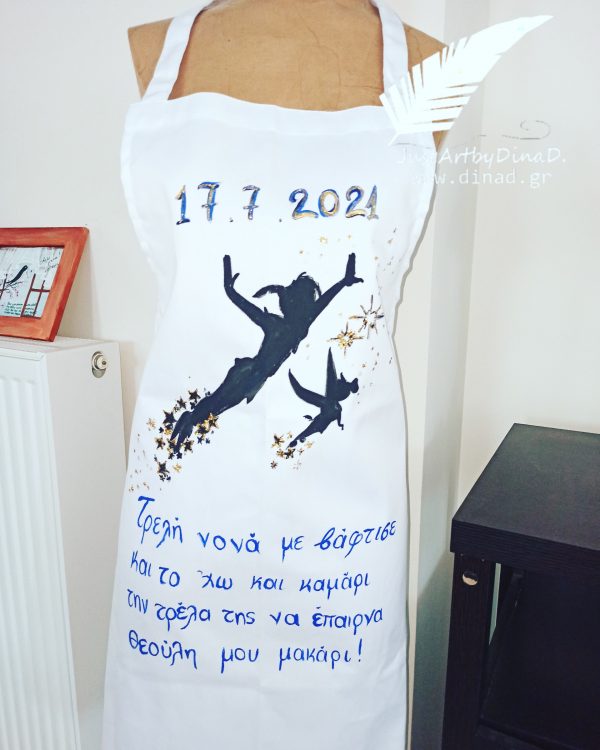 JustArtbyDinaD.
www.dinad.gr
17.7.2021
Τρελή νονά με βάφτισε
και το 'χω και καμάρι
την τρέλα της να έπαιρνα
θεούλη μου μακάρι!